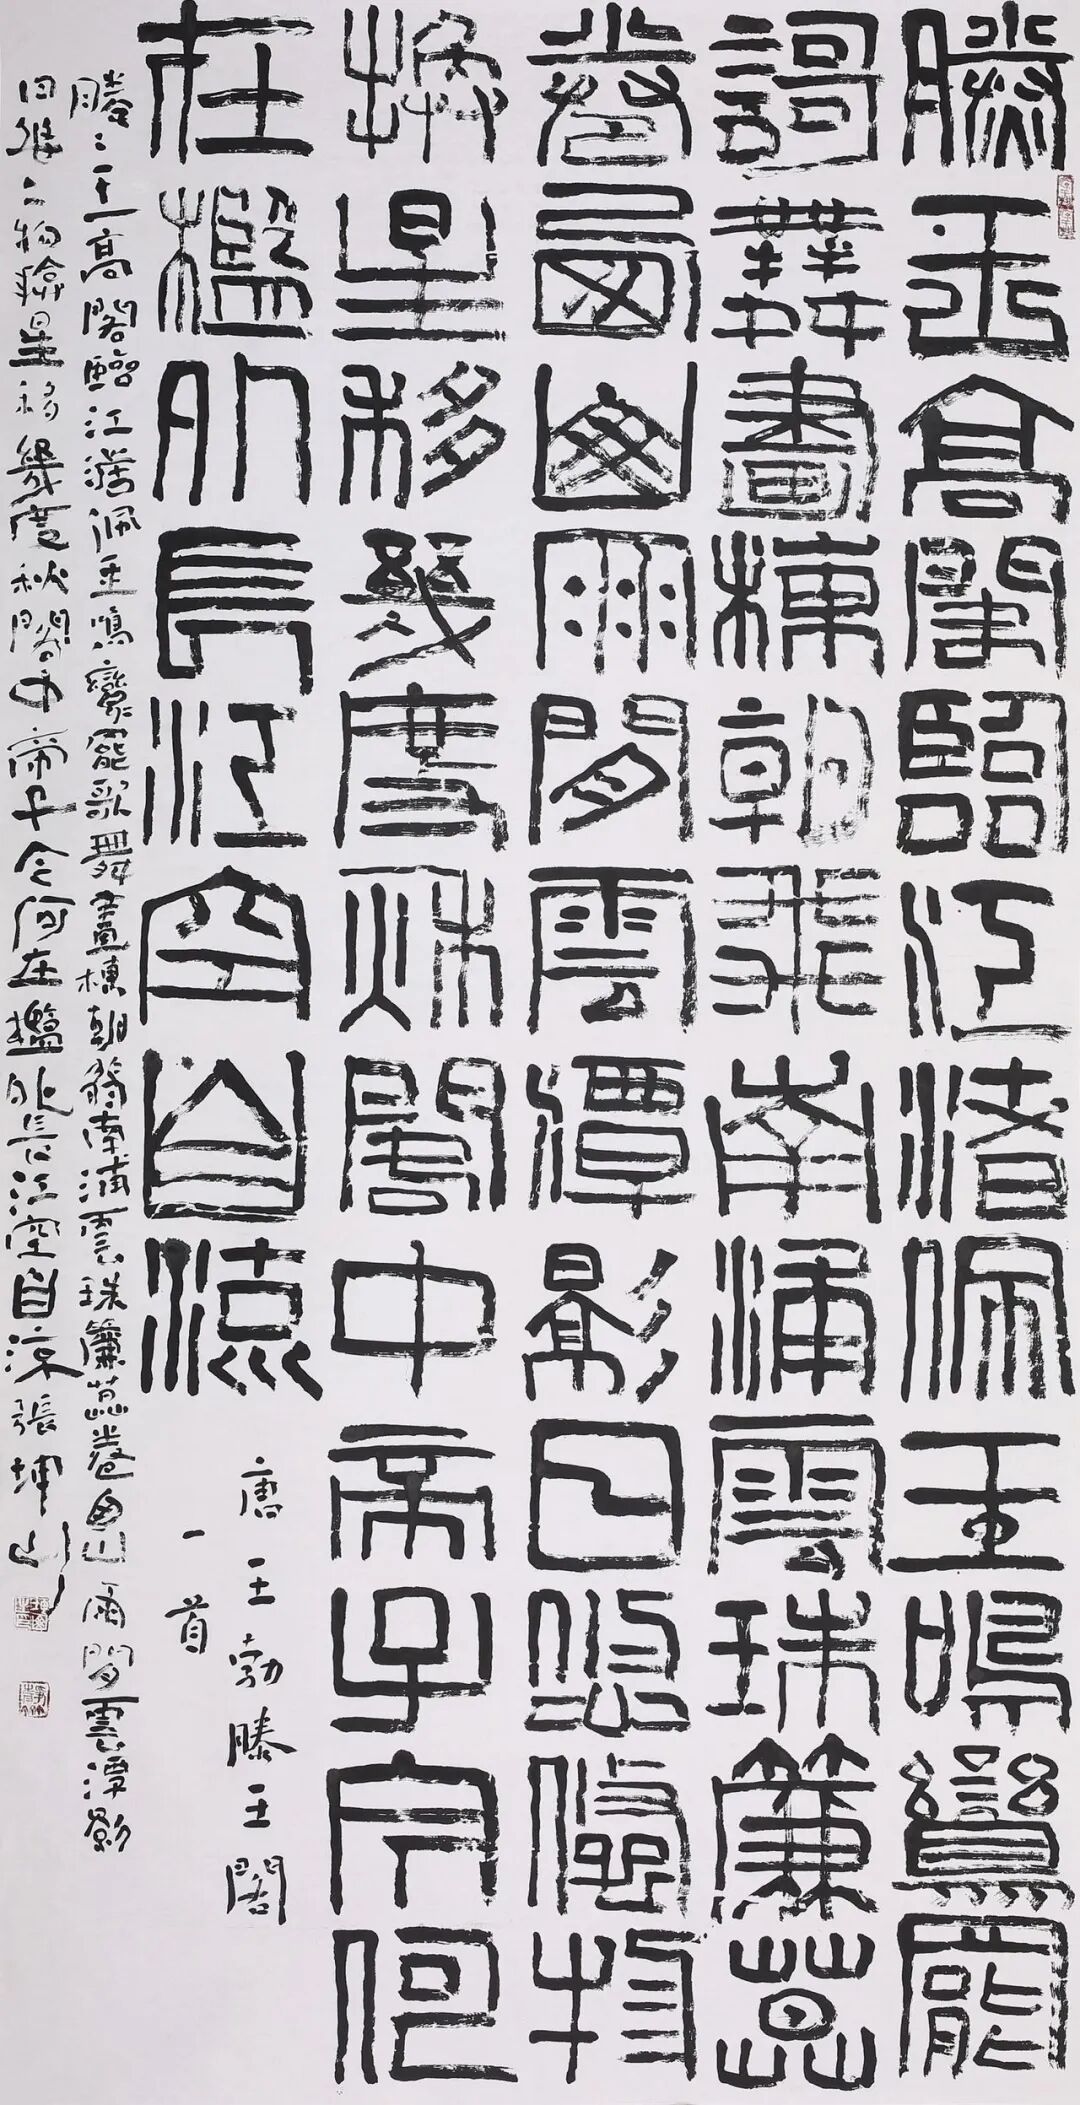 滕王高閣臨江渚佩玉鳴鸞罷
謌舞畫棟朝飛南浦雲珠簾暮
卷西山雨閒雲潭影日悠悠物
換星移幾度秋閣中帝子今何
在檻外長江空自流
唐王勃滕王閣
一首
滕王高閣臨江渚佩玉鳴鸞罷歌舞畫棟朝飛南浦雲珠簾暮卷西山雨閒雲潭影
日悠悠物換星移幾度秋閣中帝子今何在檻外長江空自流張坤山